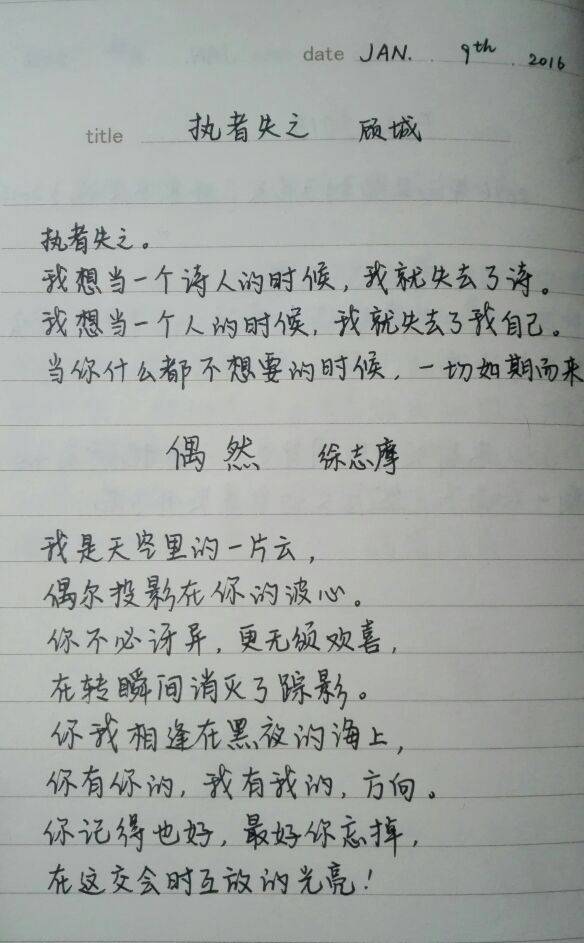 date JAN. 9th. 2016
title 执者失之 顾城
执者失之。
我想当一个诗人的时候，我就失去了诗。
我想当一个人的时候，我就失去了我自己。
当你什么都不想要的时候，一切如期而来
偶然 徐志摩
我是天空里的一片云，
偶尔投影在你的波心。
你不必讶异，更无须欢喜，
在转瞬间消灭了踪影。
你我相逢在黑夜的海上，
你有你的，我有我的，方向。
你记得也好，最好你忘掉，
在这交会时互放的光亮！